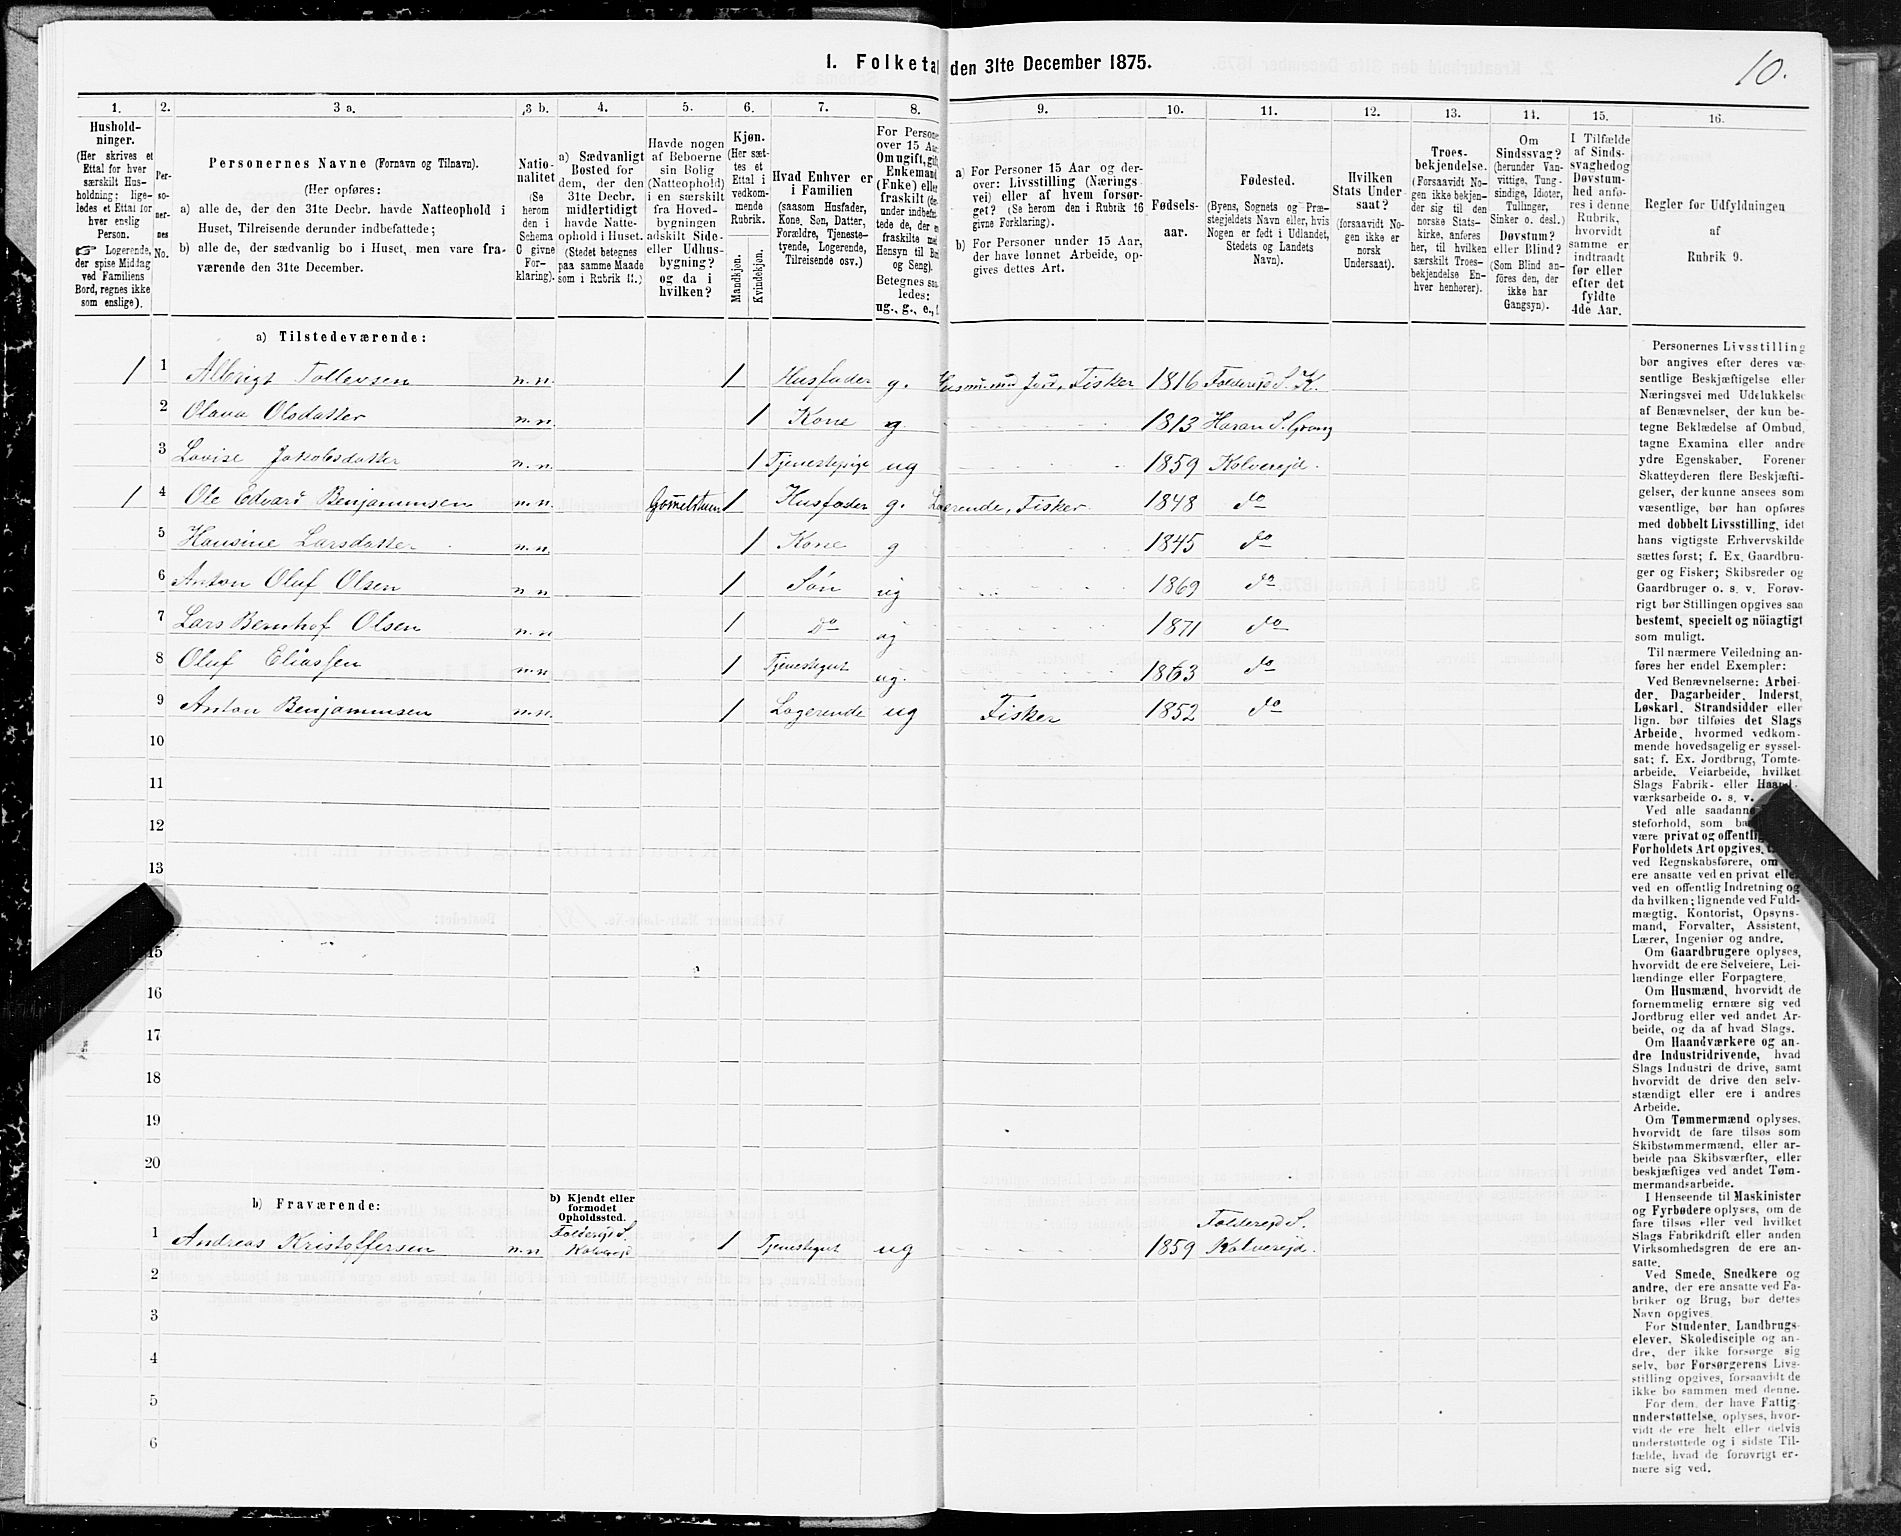 1. Folketal den 31te December 1875.
10.
1. 2. 3 a. 3 b. 4. 5. 6. 7. 8. 9. 10. 11. 12. 13. 14. 15. 16.
Hushold-
ninger.
(Her skrives et
Ettal for hver
særskilt Hus-
holdning; lige-
ledes et Ettal for
enslig
Person.
☞ Logerende,
der spise Middag
ved Familiens
Bord, regnes ikke
som enslige).
Per-
so-
ner-
nes
No.
Personernes Navne (Fornavn og Tilnavn).
(Her opføres:
a) alle de, der den 31te Decbr. havde Natteophold i
Huset, Tilreisende derunder indbefattede;
b) alle de, der sædvanlig bo i Huset, men vare fra-
værende den 31te December.
Natio-
nalitet
(Se
herom
den i
Schema
C givne
For-
klaring).
a) Sædvanligt
Bosted for
dem, der den
31te Decbr.
midlertidigt
havde Natte-
ophold i Huset.
(Stedet betegnes
paa samme Maade
som i Rubrik 11.)
Havde nogen
af Beboerne
sin Bolig
(Natteophold)
i en særskilt
fra Hoved-
bygningen
adskilt Side-
eller Udhus-
bygning?
og da i
hvilken?
Kjøn.
(Her sæt-
tes et
Ettal i
vedkom-
mende
Rubrik.
Mandkjøn.
Kvindekjøn.
Hvad Enhver er
i Familien
(saasom Husfader,
Kone, Søn, Datter,
Forældre, Tjeneste-
tyende, Logerende,
Tilreisende osv.)
For Persone
over 15 Aa
Om ugift, gift
Enkemand
(Enke) elle
fraskilt (der
under indbefat
tede de, der e
fraskilte med
Hensyn til Bo
og Seng).
Betegnes saa-
ledes:
ug., g., e., f.
a) For Personer 15 Aar og der-
over: Livsstilling (Nærings
vei) eller af hvem forsør-
get? (Se herom den i Rubrik 16
givne Forklaring).
b) For Personer under 15 Aar,
der have lønnet Arbeide, op-
gives dettes Art.
Fødsels-
aar.
Fødested.
(Byens, Sognets og Præ-
stegjeldets Navn eller, hvis
Nogen er født i Udlandet,
Stedets og Landets
Navn).
Hvilken
Stats Under-
saat?
(forsaavidt No-
gen ikke er
norsk
Undersaat).
Troes-
bekjendelse.
(Forsaavidt No-
gen ikke bekjen-
der sig til den
norske Stats-
kirke, anføres
her, til hvilken
særskilt Troes-
bekjendelse En-
hver henhører).
Om
Sindssvag?
(herunder Van-
vittige, Tung-
sindige, Idioter,
Tullinger,
Sinker o. desl.)
Døvstum?
eller Blind?
(Som Blind an-
føres den, der
ikke har
Gangsyn).
I Tilfælde
af Sinds-
svaghed og
Døvstum-
hed anfø-
res i denne
Rubrik,
hvorvidt
samme er
indtraadt
før eller
efter det
fyldte
4de Aar.
Regler for Udfyldningen
af
Rubrik 9.
a) Tilstedeværende:
1 1 Albrigt Tollevsen n.n. 1 Husfader g. Husmand Jord, Fisker 1816 Foldereid S. K.
2 Olava Olsdatter n.n. 1 Kone g 1813 Haran S. Grong
3 Lovise Jakobsdatter n.n. 1 Tjenestepige ug 1859 Kolvereid.
1 4 Ole Edvard Benjaminsen n.n. 1 Husfader g. Logerende, Fisker 1848 do
5 Hansine Larsdatter n.n. 1 Kone g 1845 do
6 Anton Oluf Olsen n.n 1 Søn ug 1869 do
7 Lars Bernhof Olsen n.n 1 do ug 1871 do
8 Oluf Eliassen n.n 1 Tjenestegut ug. 1863 do
9 Anton Benjaminsen n.n. 1 Logerende ug Fisker 1852 do
10
11
12
13
15
16
17
18
19
20
b) Fraværende:
b) Kjendt eller
formodet
Opholdssted.
1 Andreas Kristoffersen n.n Foldereid S. Kolvereid 1 Tjenestegut ug 1859 Foldereid S. Kolvereid.
2
3
4
5
6
Personernes Livsstilling
bør angives efter deres væ-
sentlige Beskjæftigelse eller
Næringsvei med Udelukkelse
af Benævnelser, der kun be-
tegne Beklædelse af Ombud,
tagne Examina eller andre
ydre Egenskaber. Forener
Skatteyderen flere Beskjæfti-
gelser, der kunne ansees som
væsentlige, bør han opføres
med dobbelt Livsstilling, idet
hans vigtigste Erhvervskilde
sættes først; f. Ex. Gaardbru-
ger og Fisker; Skibsreder og
Gaardbruger o. s. v. Forøv-
rigt bør Stillingen opgives saa
bestemt, specielt og nöiagtigt
som muligt.
Til nærmere Veiledning an-
føres her endel Exempler:
Ved Benævnelserne: Arbei-
der, Dagarbeider, Inderst,
Løskarl, Strandsidder eller
lign. bør tilføies det Slags
Arbeide, hvormed vedkom-
mende hovedsagelig er syssel-
sat; f. Ex. Jordbrug, Tomte-
arbeide, Veiarbeide, hvilket
Slags Fabrik- eller Haand-
værksarbeide o. s. v.
Ved alle saadanne
steforhold, som
være privat og offentlig
Forholdets Art opgives,
ved Regnskabsførere, om
ere ansatte ved en privat elle
ved en offentlig Indretning og
da hvilken; lignende ved Fuld-
mægtig, Kontorist, Opsyns-
mand, Forvalter, Assistent,
Lærer, Ingeniør og andre.
Om Gaardbrugere oplyses,
hvorvidt de ere Selveiere, Lei-
lændinge eller Forpagtere.
Om Husmænd, hvorvidt de
fornemmelig ernære sig ved
Jordbrug eller ved andet Ar-
beide, og da af hvad Slags.
Om Haandværkere og an-
dre Industridrivende, hvad
Slags Industri de drive, samt
hvorvidt de drive den selv-
stændigt eller ere i andres
Arbeide.
Om Tømmermænd oplyses,
hvorvidt de fare tilsøs som
Skibstømmermænd, eller ar-
beide paa Skibsværfter, eller
beskjæftiges ved andet Tøm-
mermandsarbeide.
I Henseende til Maskinister
og Fyrbødere oplyses, om de
fare tilsøs eller ved hvilket
Slags Fabrikdrift eller anden
Virksomhedsgren de ere an-
satte.
Ved Smede, Snedkere og
andre, der ere ansatte ved Fa-
briker og Brug, bør dettes
Navn opgives.
For Studenter, Landbrugs-
elever, Skoledisciple og an-
dre, der ikke forsørge sig
selv, bør Forsørgerens Livs-
stilling opgives, forsaavidt de
ikke bo sammen med denne.
For dem, der have Fattig-
understøttelse, oplyses, hvor-
vidt de ere helt eller delvis
understøttede og i sidste Til-
fælde, hvad de forøvrigt er-
nære sig ved.